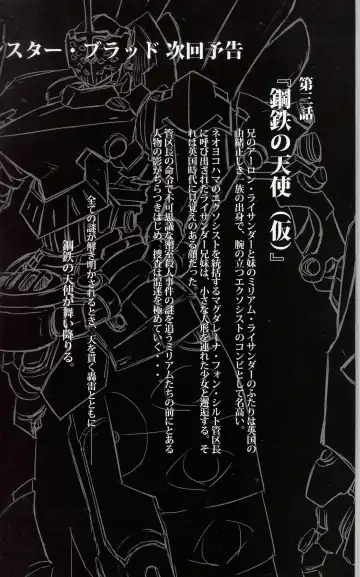 スター・ブラッド 次回予告
第三話
『鋼鉄の天使（仮）』
兄のアーロン・ライサンダーと妹のミリアム・ライサンダーのふたりは英国の
由緒正しき一族の出身で、腕の立つエクソシストのコンビとして名高い。
ネオヨコハマのエクソシストを統括するマグダレーナ・フォン・シルト管区長
に呼び出されたライサンダー兄妹は、小さな人形を連れた少女と邂逅する。そ
れは英国時代に見覚えのある顔だった。
管区長の命令で不可思議な密室殺人事件の謎を追うミリアムたちの前にとある
人物の影がちらつきはじめ、捜査は混迷を極めていく・・・
――全ての謎が解き明かされるとき、天を貫く轟雷とともに
鋼鉄の天使が舞い降りる。